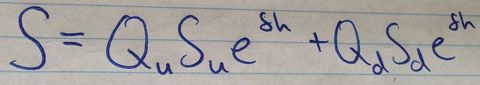 S = Q_u S_u e^{δh} + Q_d S_d e^{δh}